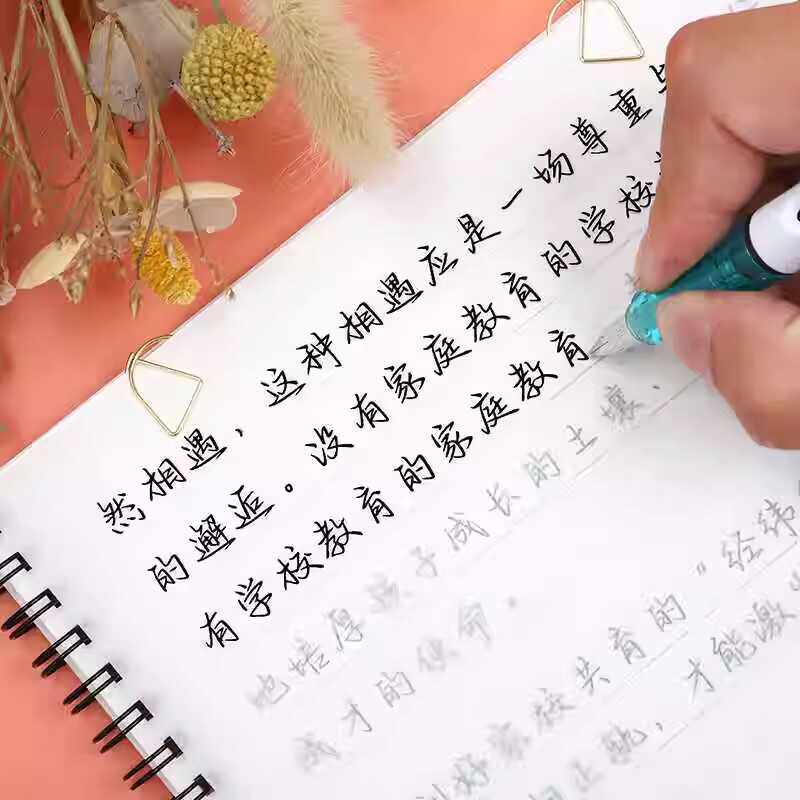 然相遇，这种相遇应是一场尊重与
的邂逅。没有家庭教育的学校
有学校教育的家庭教育
地培厚孩子成长的土壤，
成才的使命。
好家校共育的“经纬
正轨，才能激